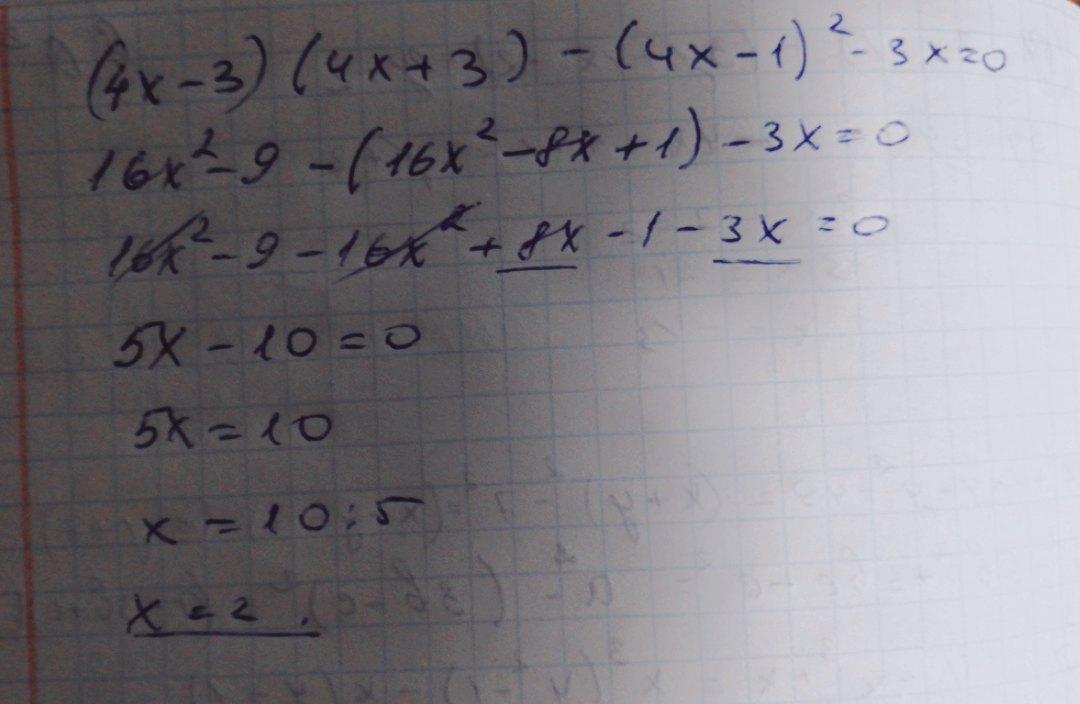 (4x-3)(4x+3)-(4x-1)²-3x=0
16x²-9-(16x²-8x+1)-3x=0
16x²-9-16x²+8x-1-3x=0
5x-10=0
5x=10
x=10:5
x=2.